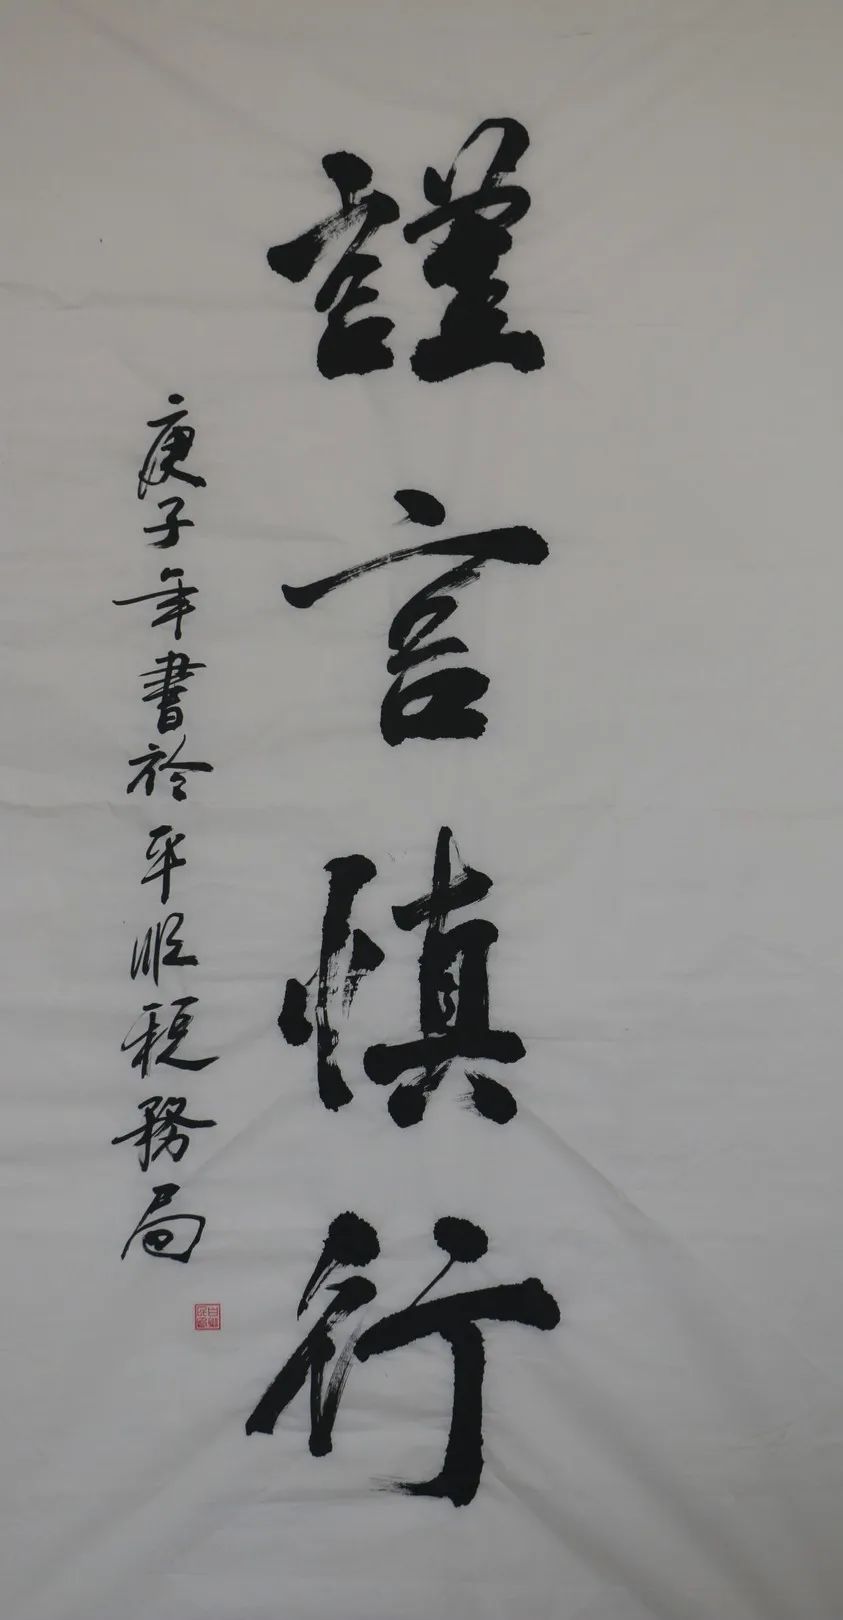 謹言慎行
庚子年書於平順税務局